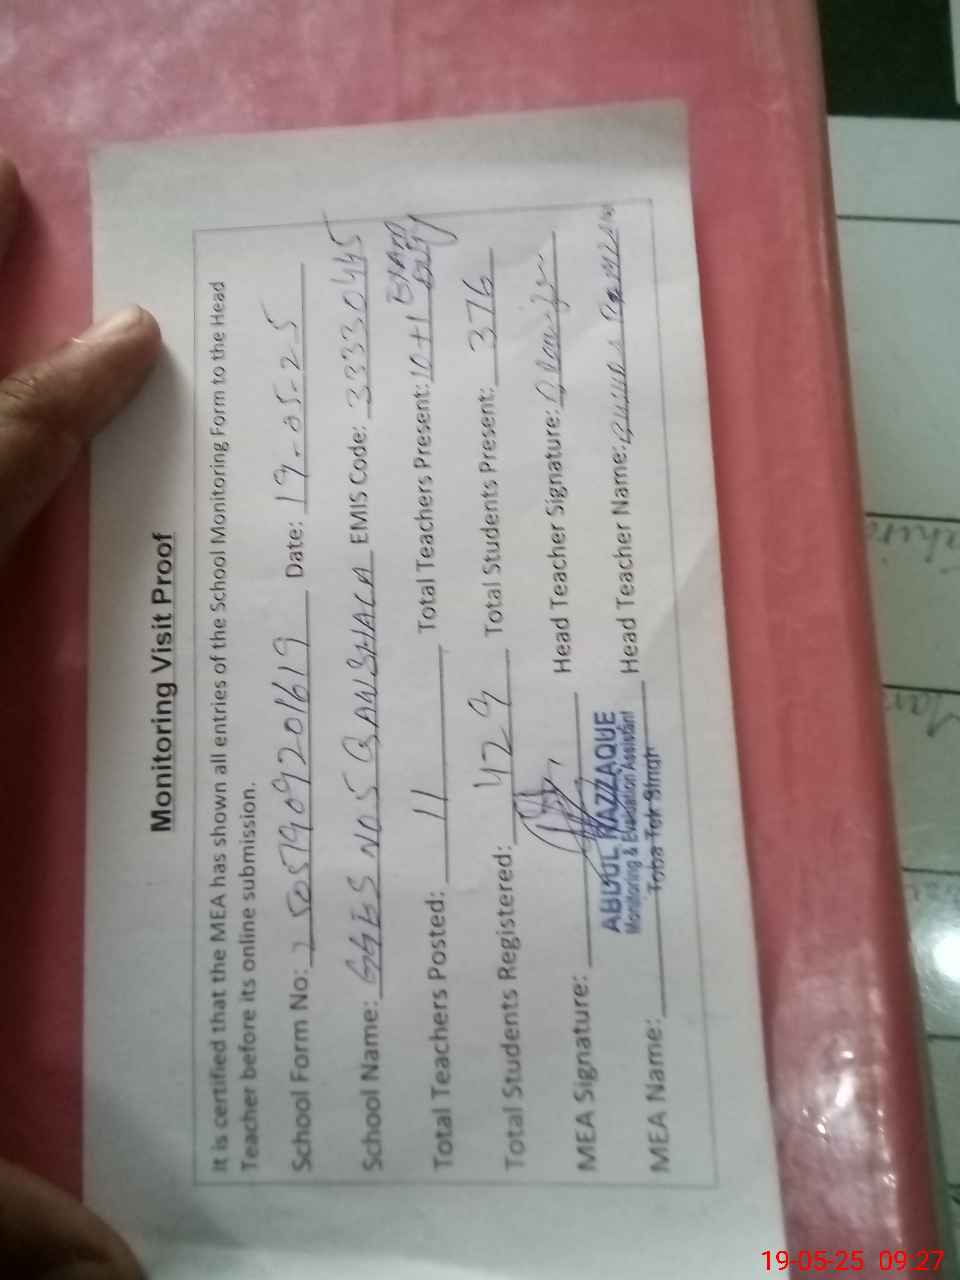 Monitoring Visit Proof
It is certified that the MEA has shown all entries of the School Monitoring Form to the Head
Teacher before its online submission.
School Form No: 25051909201619 Date: 19-05-25
School Name: GGES NO5 EMIS Code: 33330445
Total Teachers Posted: 11 Total Teachers Present: 10+1 EXAM Duty
Total Students Registered: 429 Total Students Present: 376
MEA Signature: Head Teacher Signature:
ABDUL RAZZAQUE
Monitoring & Evaluation Assistant
Toba Tek Singh
MEA Name: Head Teacher Name:
19-05-25 09:27